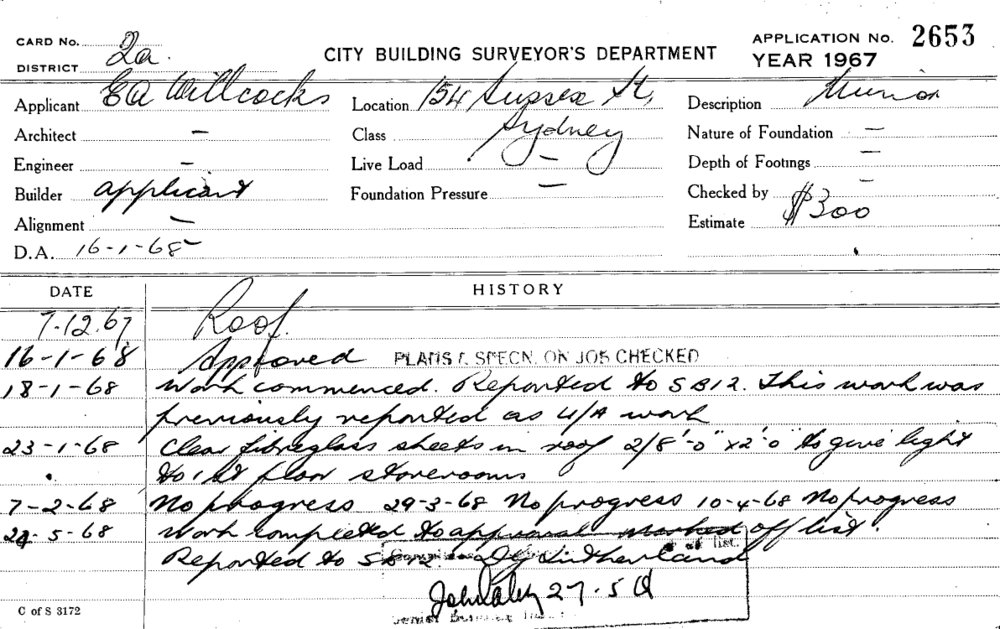 CARD No. 2a.
DISTRICT
CITY BUILDING SURVEYOR'S DEPARTMENT
APPLICATION No. 2653
YEAR 1967
Applicant EA Willcocks
Location 154 Sussex St,
Sydney
Description Minor
Architect —
Class
Nature of Foundation —
Engineer —
Live Load —
Depth of Footings —
Builder applicant
Foundation Pressure —
Checked by
Alignment —
Estimate $300
D.A. 16-1-68
DATE HISTORY
7.12.67 Roof.
16-1-68 Approved PLANS & SPECN. ON JOB CHECKED
18-1-68 Work commenced. Reported to SB12. This work was
previously reported as U/A work
23-1-68 Clear fibreglass sheets in roof 2/8'-0" x 2'-0" to give light
to 1st floor storerooms
7-2-68 No progress 29-3-68 No progress 10-4-68 No progress
-5-68 Work completed to approval marked off list.
Reported to SB12
list.
27.5
Senior
C of S 3172